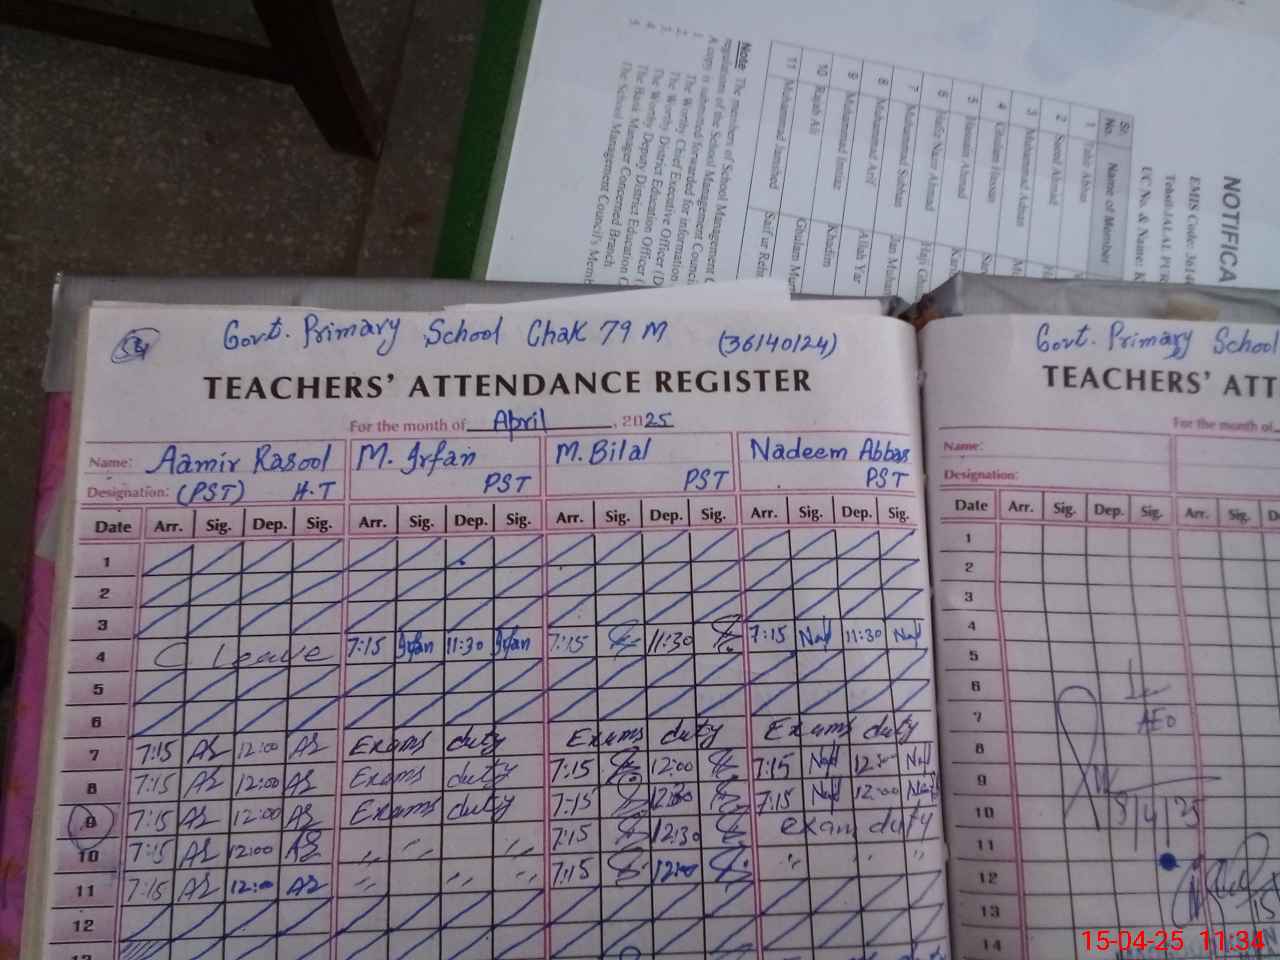 NOTIFICA
EMIS Code: 3614
Tehsil: JALAL PUR
UC No. & Name:
Sr. No. Name of Member
1 Tahir Abbas
2 Saeed Ahmad
3 Muhammad Adnan
4 Ghulam Hassan
5 Hussain Ahmad
6 Hafiz Nazir Ahmad
7 Muhammad Sobhan Haji
8 Muhammad Arif Jan Muha
9 Muhammad Imtiaz Allah Yar
10 Rajab Ali Khadim
11 Muhammad Jamshed Ghulam
Saif ur Rehm
Note The members of School Management C
regulations of the School Management Counci
A copy is submitted forwarded for information
1 The Worthy Chief Executive Officer (D
2 The Worthy District Education Officer
3 The Worthy Deputy District Education Officer (
4 The Basic Manager Concerned Education C
5 The School Management Council's Memb
54
Govt. Primary School Chak 79 M (36140124)
TEACHERS' ATTENDANCE REGISTER
For the month of April, 2025
Name: Aamir Rasool M. Irfan M. Bilal Nadeem Abbas
Designation: (PST) H.T PST PST PST
Date Arr. Sig. Dep. Sig. Arr. Sig. Dep. Sig. Arr. Sig. Dep. Sig. Arr. Sig. Dep. Sig.
1
2
3
4 C Leave 7:15 Irfan 11:30 Irfan 7:15 11:30 7:15 Nad 11:30 Nad
5
6
7 7:15 AR 12:00 AR Exams duty Exams duty Exams duty
8 7:15 AR 12:00 AR Exams duty 7:15 12:00 7:15 Nad 12:00 Nad
9 7:15 AR 12:00 AR Exams duty 7:15 7:15 Nad 12:00 Nad
10 7:15 AR 12:00 AR ,, ,, ,, 7:15 12:30 exam duty
11 7:15 AR 12:00 AR ,, ,, ,, 7:15 12:00 " " "
12
13
Govt. Primary School
TEACHERS' ATT
For the month of
Name:
Designation:
Date Arr. Sig. Dep. Sig. Arr. Sig. D
1
2
3
4
5
6
7
AEO
8
9
10
11
12
13
14
15-04-25 11:34